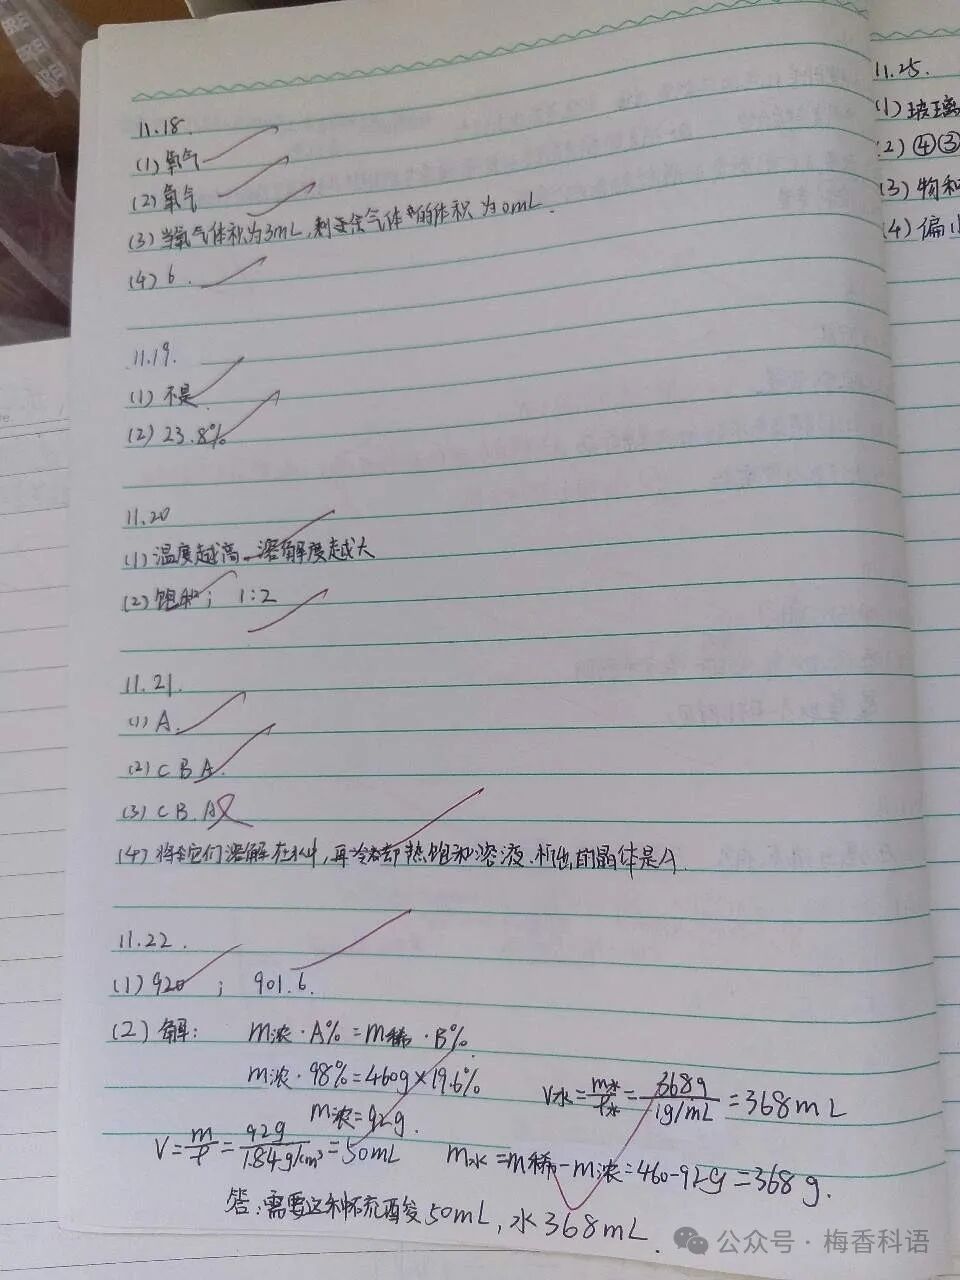 11.18.
(1) 氧气
(2) 氧气
(3) 当氧气体积为3mL,剩余气体的体积为0mL.
(4) 6.
11.19.
(1) 不是.
(2) 23.8%
11.20
(1) 温度越高 溶解度越大
(2) 饱和; 1:2
11.21.
(1) A.
(2) C B A.
(3) C B. A
(4) 将它们溶解在水中,再冷却热饱和溶液.析出的晶体是A.
11.22.
(1) 920 ; 901.6.
(2) 解: m浓·A%=m稀·B%
m浓·98%=460g×19.6%
m浓=92g.
V=m/ρ=92g/1.84g/cm³=50mL
m水=m稀-m浓=460-92g=368g.
V水=m水/ρ水=368g/1g/mL=368mL
答:需要这种硫酸50mL,水368mL.
11.25.
(1) 玻璃
(2) ④③
(3) 物和
(4) 偏小
公众号·梅香科语